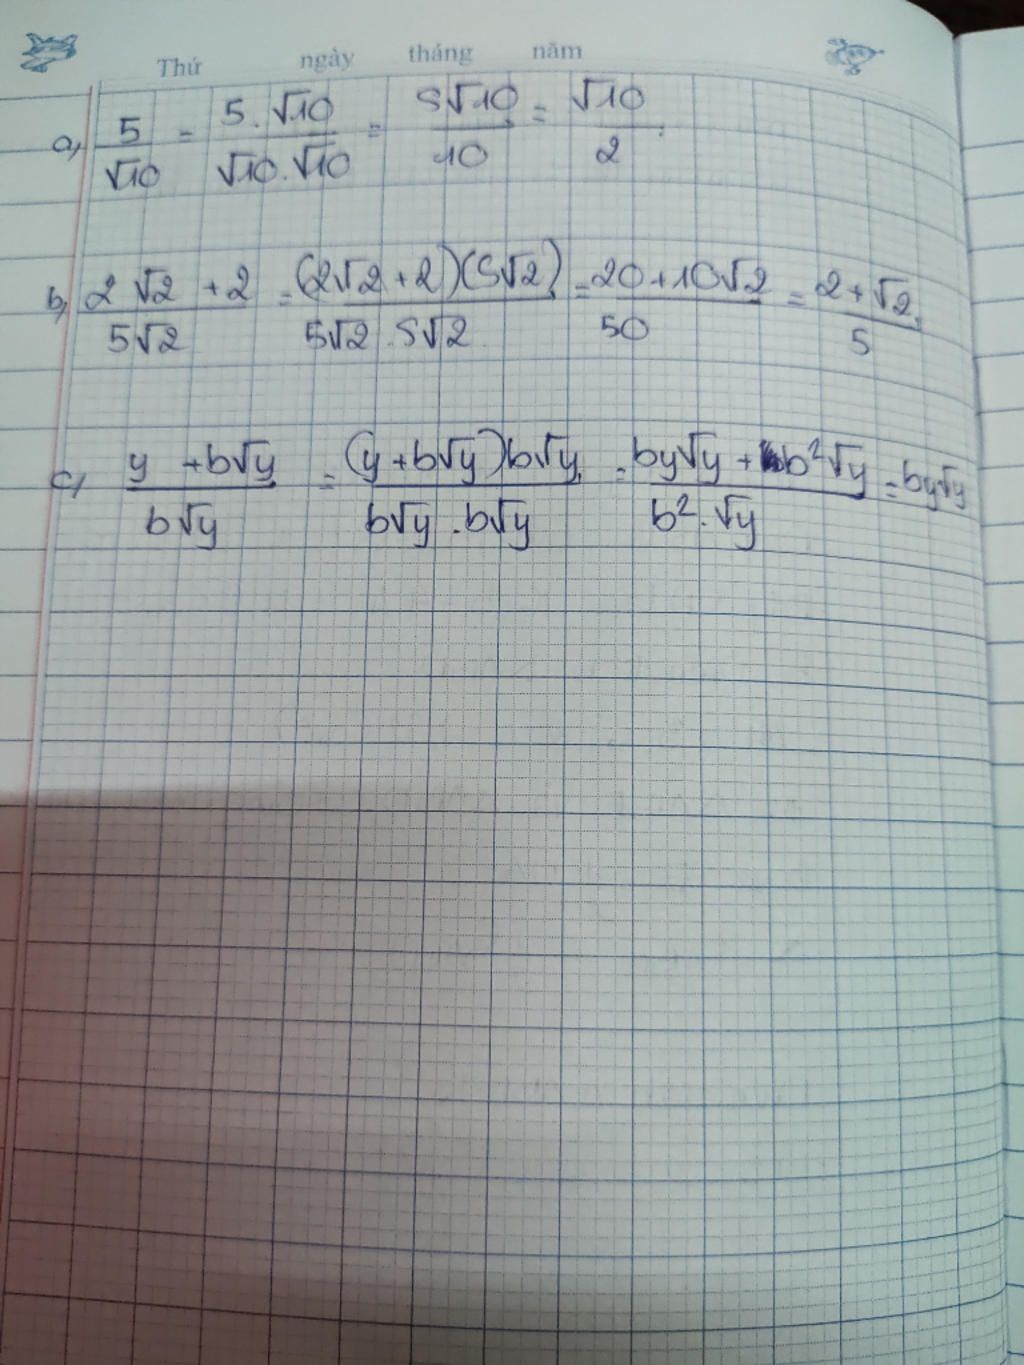 Thứ ngày tháng năm
a, 5/√10 = 5.√10/√10.√10 = 5√10/10 = √10/2.
b, 2√2 + 2/5√2 = (2√2 + 2)(5√2)/5√2.5√2 = 20 + 10√2/50 = 2 + √2/5
c, y + b√y/b√y = (y + b√y)b√y/b√y.b√y = by√y + b²√y/b².√y = by√y